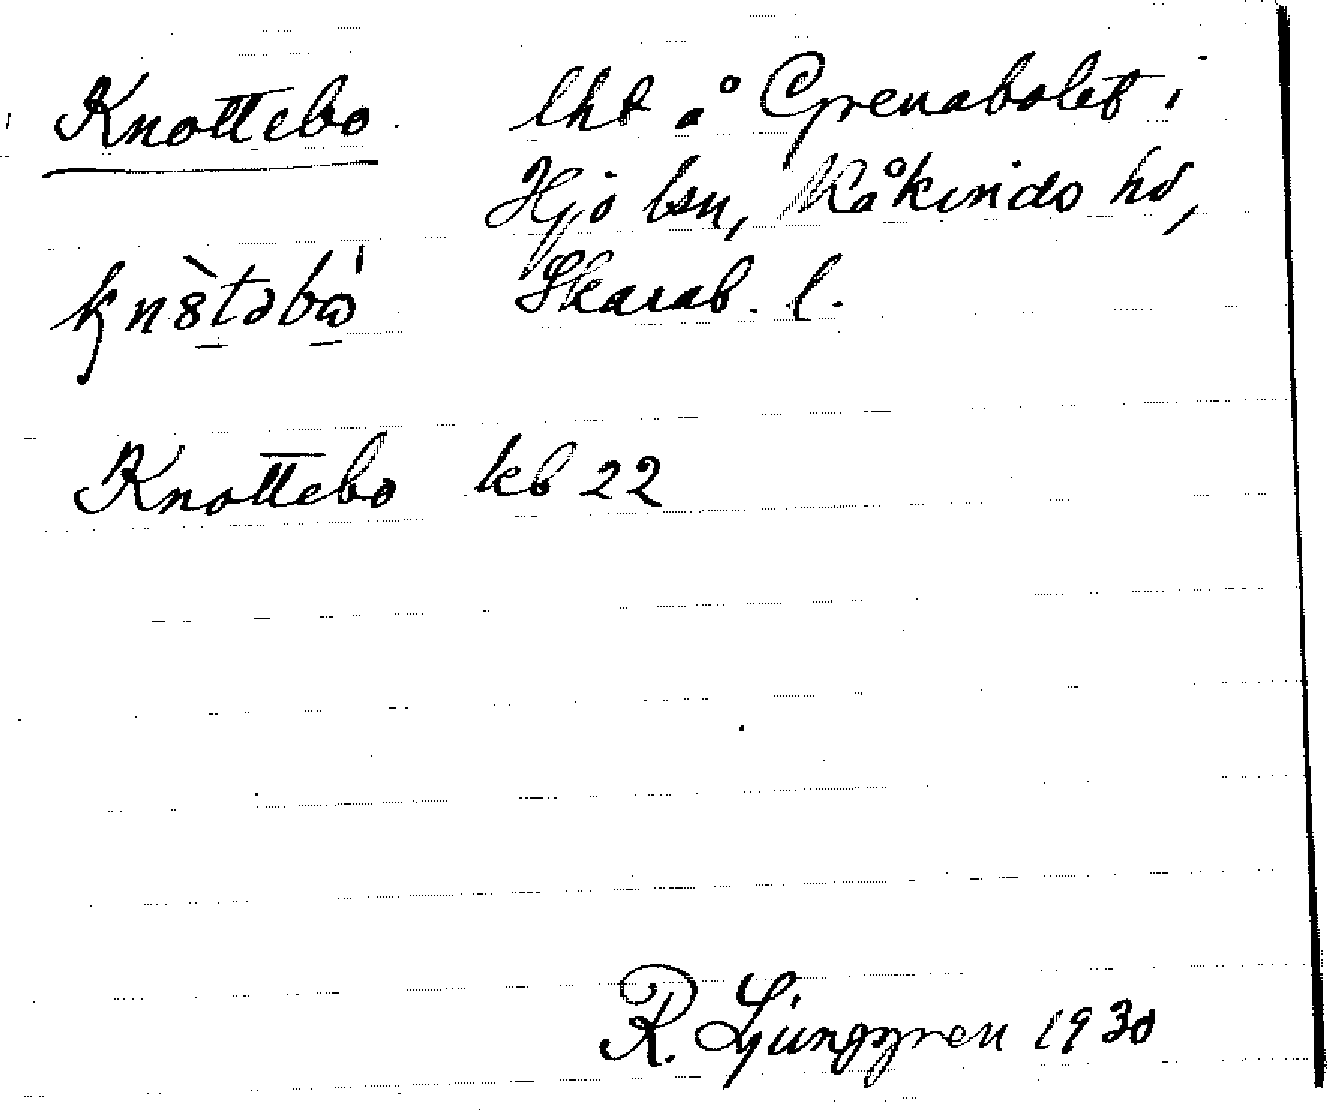 Knottebo lht å Grenabolet i
Hjo lsn, Kåkinds hd,
Skarab. l.
Knottebo kb 22
R. Ljunggren 1930